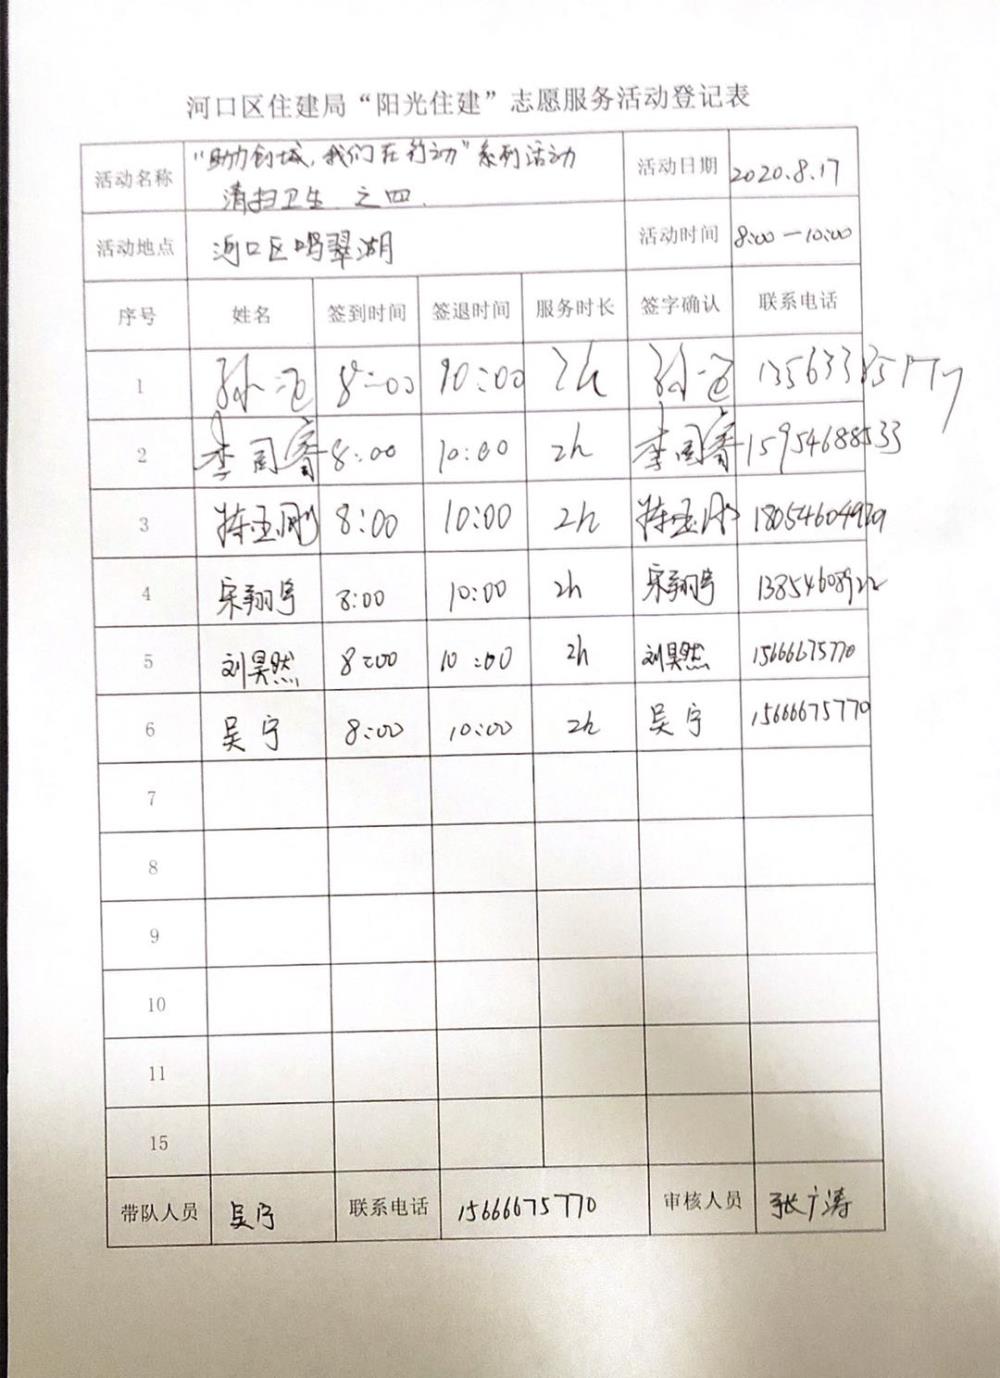 河口区住建局“阳光住建”志愿服务活动登记表
活动名称 “助力创城，我们在行动”系列活动 活动日期 2020.8.17
清扫卫生 之四.
活动地点 河口区鸣翠湖 活动时间 8:00—10:00
序号 姓名 签到时间 签退时间 服务时长 签字确认 联系电话
1 孙 8:00 10:00 2h 孙
2 李同睿 8:00 10:00 2h 李同睿 15954688533
3 8:00 10:00 2h
4 宋翔宇 8:00 10:00 2h 宋翔宇 13854608922
5 刘昊然 8:00 10:00 2h 刘昊然 15666675770
6 吴宁 8:00 10:00 2h 吴宁 15666675770
7
8
9
10
11
15
带队人员 吴宁 联系电话 15666675770 审核人员 张广涛